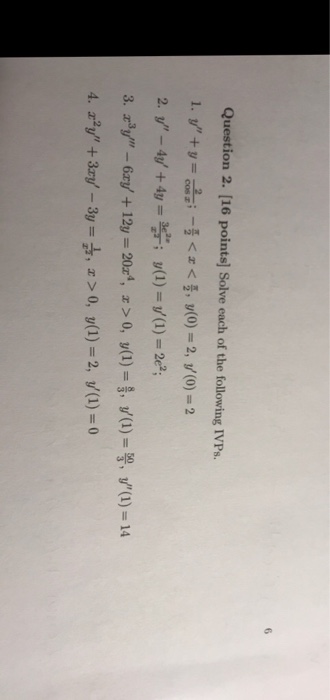 6
Question 2. [16 points] Solve each of the following IVPs.
1. y″ + y = 2/cos x; −π/2 < x < π/2, y(0) = 2, y′(0) = 2
2. y″ − 4y′ + 4y = 3e²ˣ/x²; y(1) = y′(1) = 2e²;
3. x³y‴ − 6xy′ + 12y = 20x⁴, x > 0, y(1) = 8/3, y′(1) = 50/3, y″(1) = 14
4. x²y″ + 3xy′ − 3y = 1/x³, x > 0, y(1) = 2, y′(1) = 0